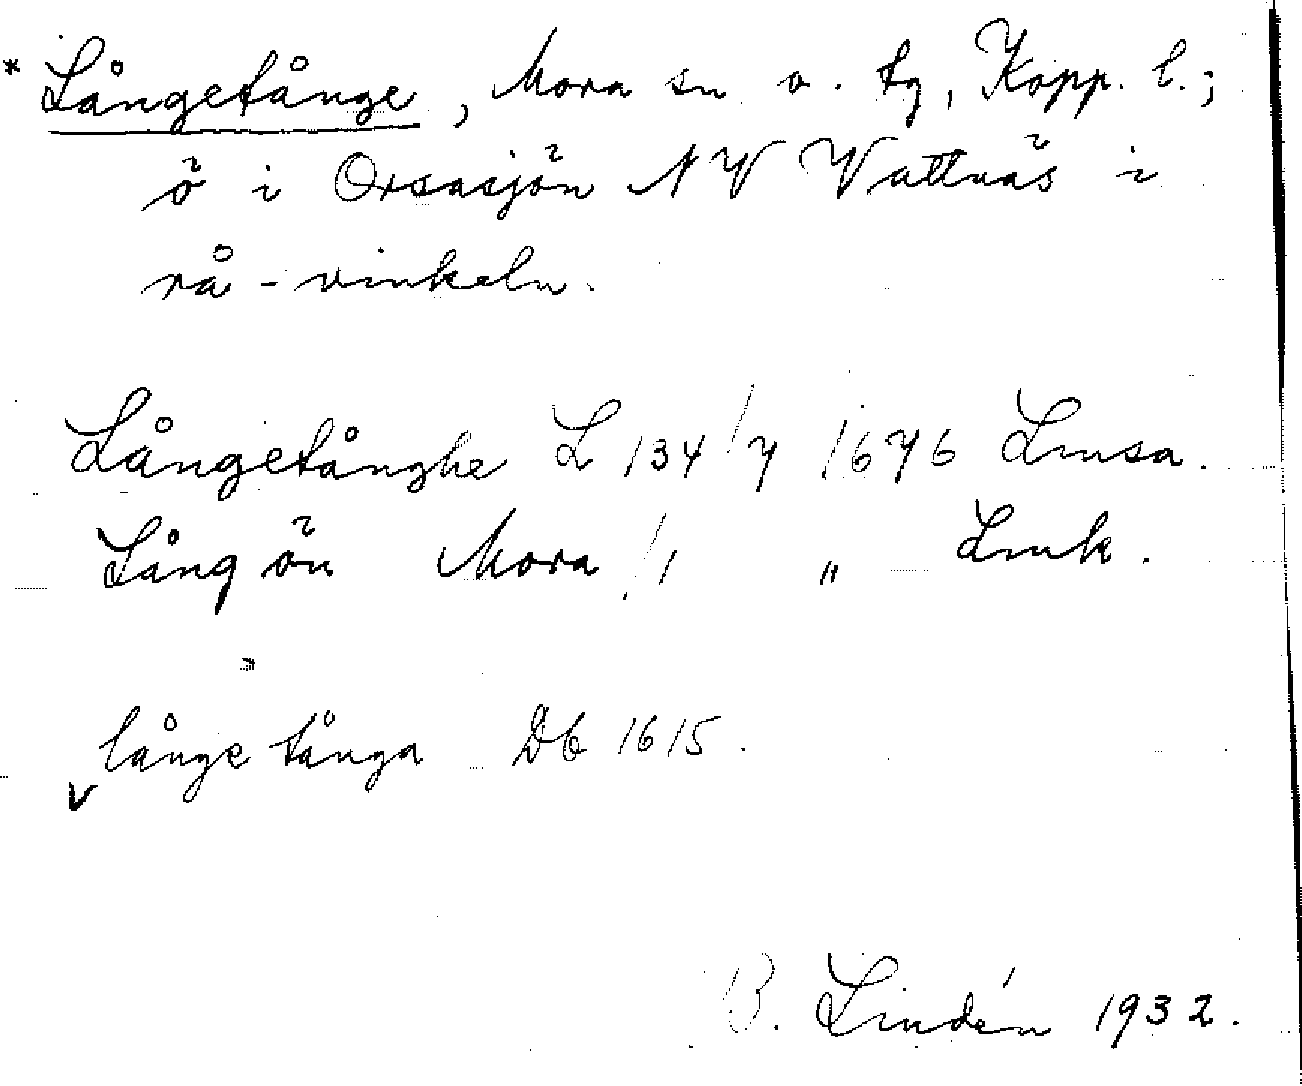 * Långetånge, Mora sn o. tg, Kopp. l.;
ö i Orsasjön NV Vattnäs i
rå-vinkeln.
Långetånghe L 134/7 1676 Lmsa.
Långön Mora /, " Lmk.
långe tånga Db 1615.
B. Lindén 1932.